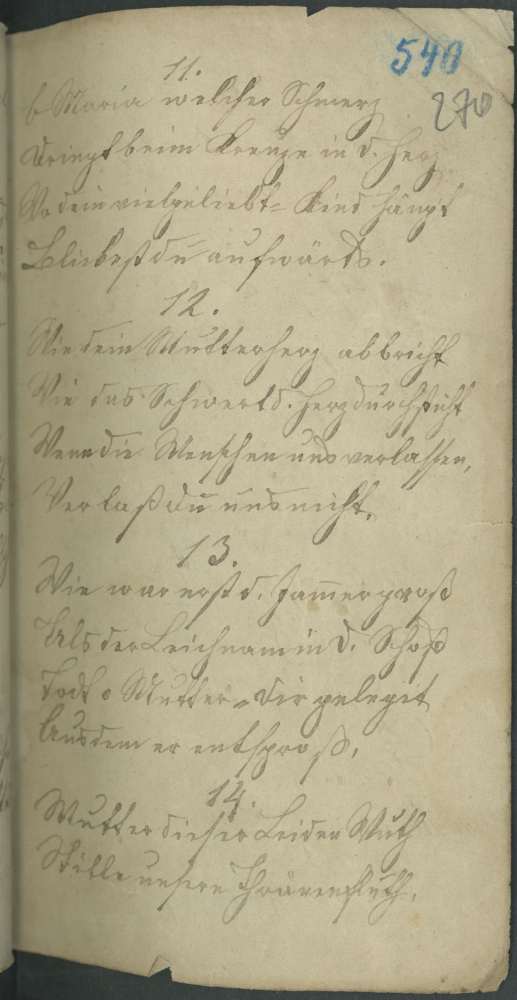 540
270
11.
O Maria welcher Schmerz
Dringt beim Kreuze in d. Herz
Wo dein vielgeliebt= Kind hängt
Bliebest du aufwärts.
12.
Wie dein Mutterherz abbricht
Wie das Schwert d. Herz durchsticht
Wenn die Menschen uns verlassen,
Verlaß du uns nicht.
13.
Wie war erst d. Jam̅er groß
Als der Leichnam in d. Schoß
Todt o Mutter=dir gelegit
Aus dem er entsproß,
14.
Mutter dieser Leiden Wuth
Stille unsere Thränenfluth,